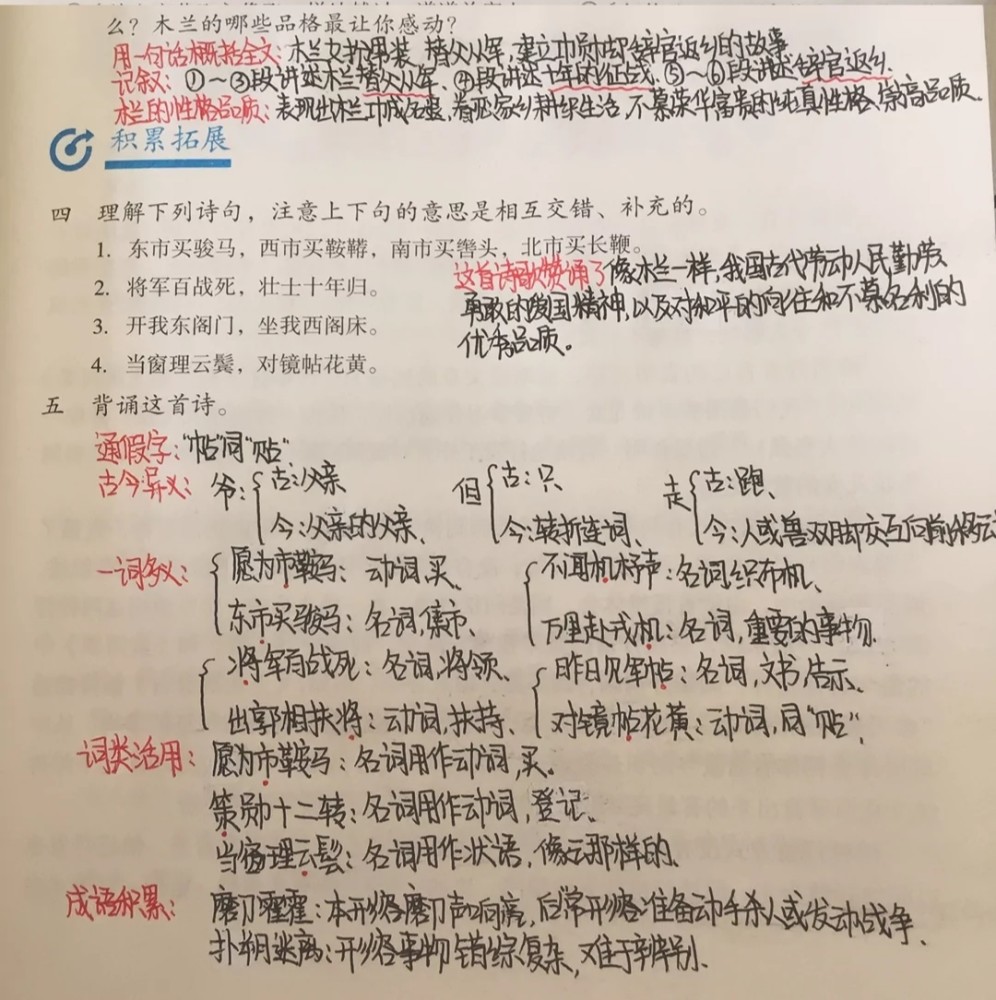 么？木兰的哪些品格最让你感动？
用一句话概括全文：木兰女扮男装，替父从军，建立功勋却辞官返乡的故事
记叙：①～③段讲述木兰替父从军、④段讲述十年的征战、⑤～⑥段讲述辞官返乡.
木兰的性格品质：表现出木兰功成名遂，眷恋家乡耕织生活，不慕荣华富贵的纯真性格、崇高品质.
积累拓展
四 理解下列诗句，注意上下句的意思是相互交错、补充的。
1. 东市买骏马，西市买鞍鞯，南市买辔头，北市买长鞭。
这首诗歌赞诵了像木兰一样，我国古代劳动人民勤劳
2. 将军百战死，壮士十年归。
勇敢的爱国精神，以及对和平的向往和不慕名利的
3. 开我东阁门，坐我西阁床。
优秀品质。
4. 当窗理云鬓，对镜帖花黄。
五 背诵这首诗。
通假字：“帖”同“贴”
古今异义：爷：古：父亲 但 古：只 走 古：跑、
今：父亲的父亲、 今：转折连词、 今：人或兽双脚交互向前移动
一词多义：愿为市鞍马：动词，买、 不闻机杼声：名词，织布机、
东市买骏马：名词，集市、 万里赴戎机：名词，重要的事物.
将军百战死：名词，将领、 昨日见军帖：名词，文书，告示、
出郭相扶将：动词，扶持、 对镜帖花黄：动词，同“贴”.
词类活用：愿为市鞍马：名词用作动词，买.
策勋十二转：名词用作动词，登记、
当窗理云鬓：名词用作状语，像云那样的、
成语积累：磨刀霍霍：本形容磨刀声响亮，后常形容准备动手杀人或发动战争、
扑朔迷离：形容事物错综复杂，难于辨别.